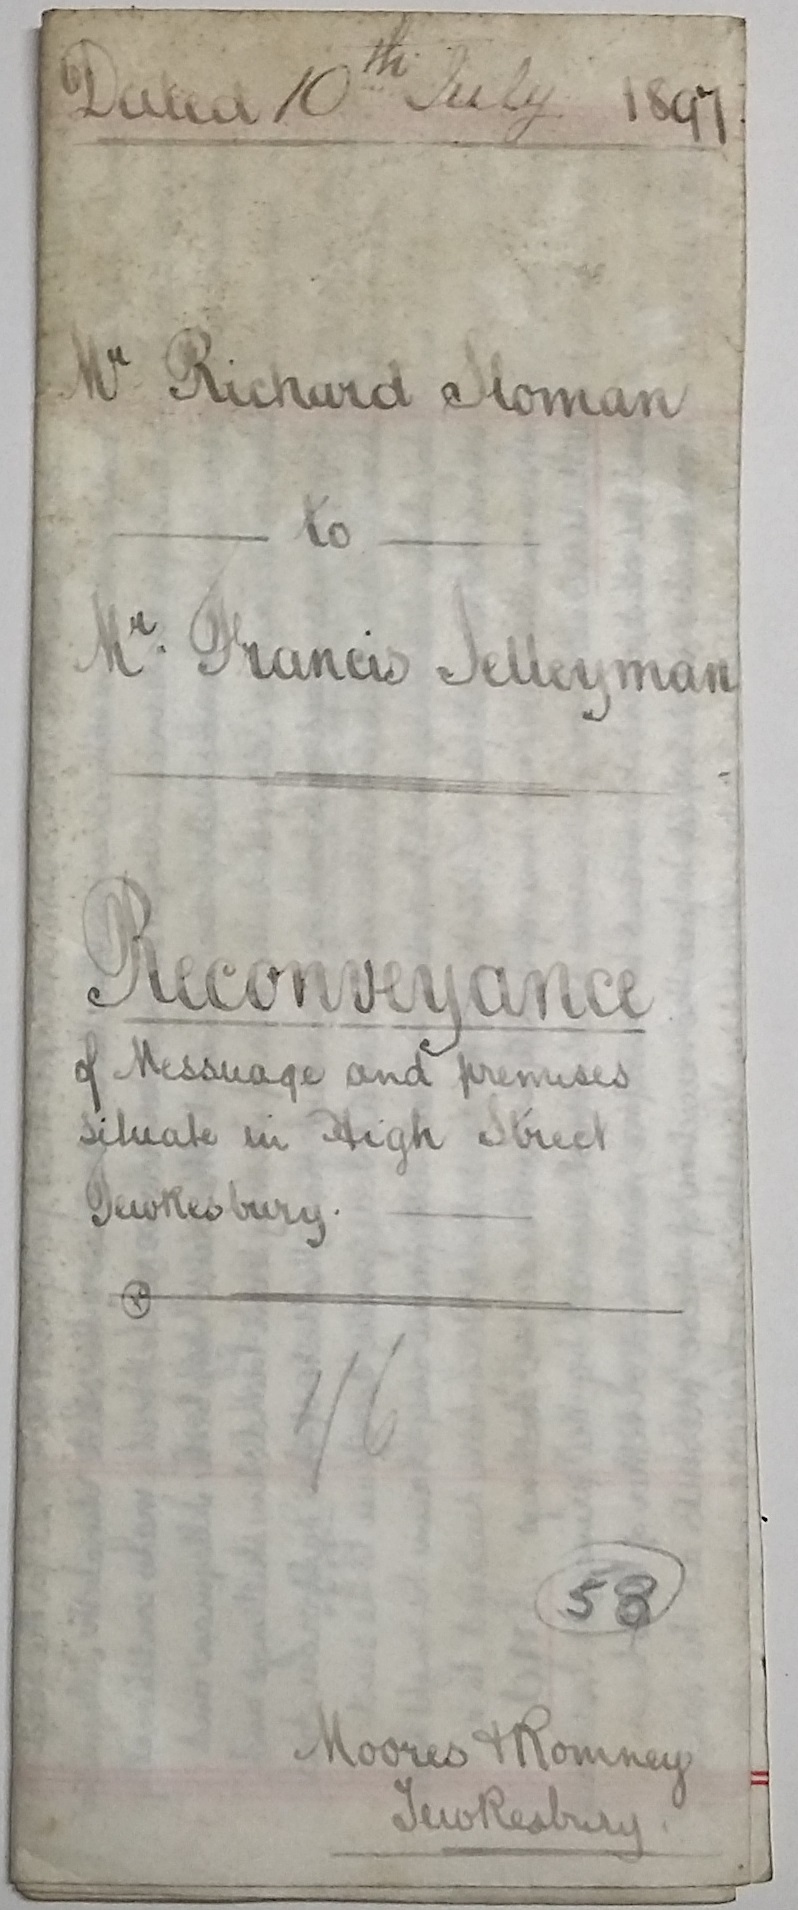 Dated 10th July 1897
Mr Richard Sloman
to
Mr. Francis Jelleyman
Reconveyance
of Messuage and premises
situate in High Street
Tewkesbury.
46
58
Moores & Romney
Tewkesbury.